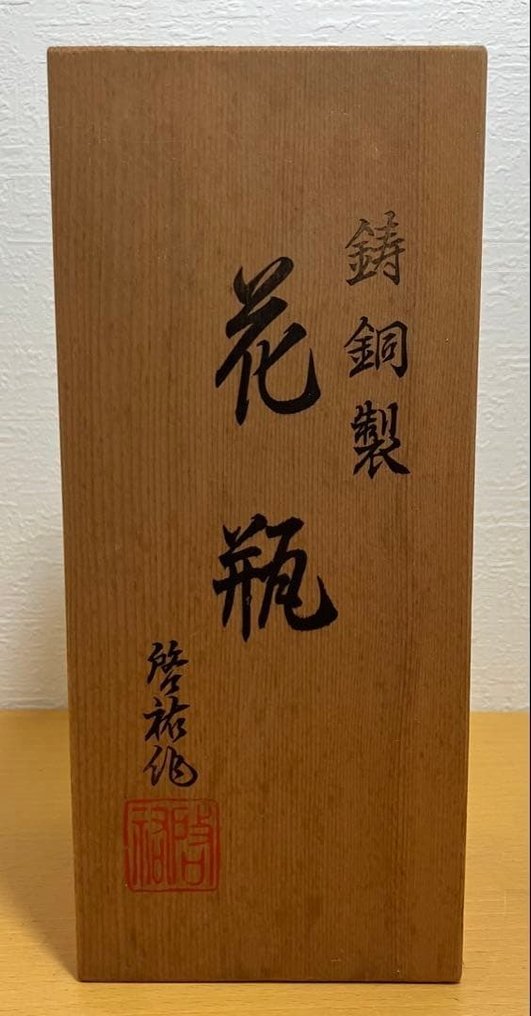 鋳銅製
花瓶
啓祐作
啓祐